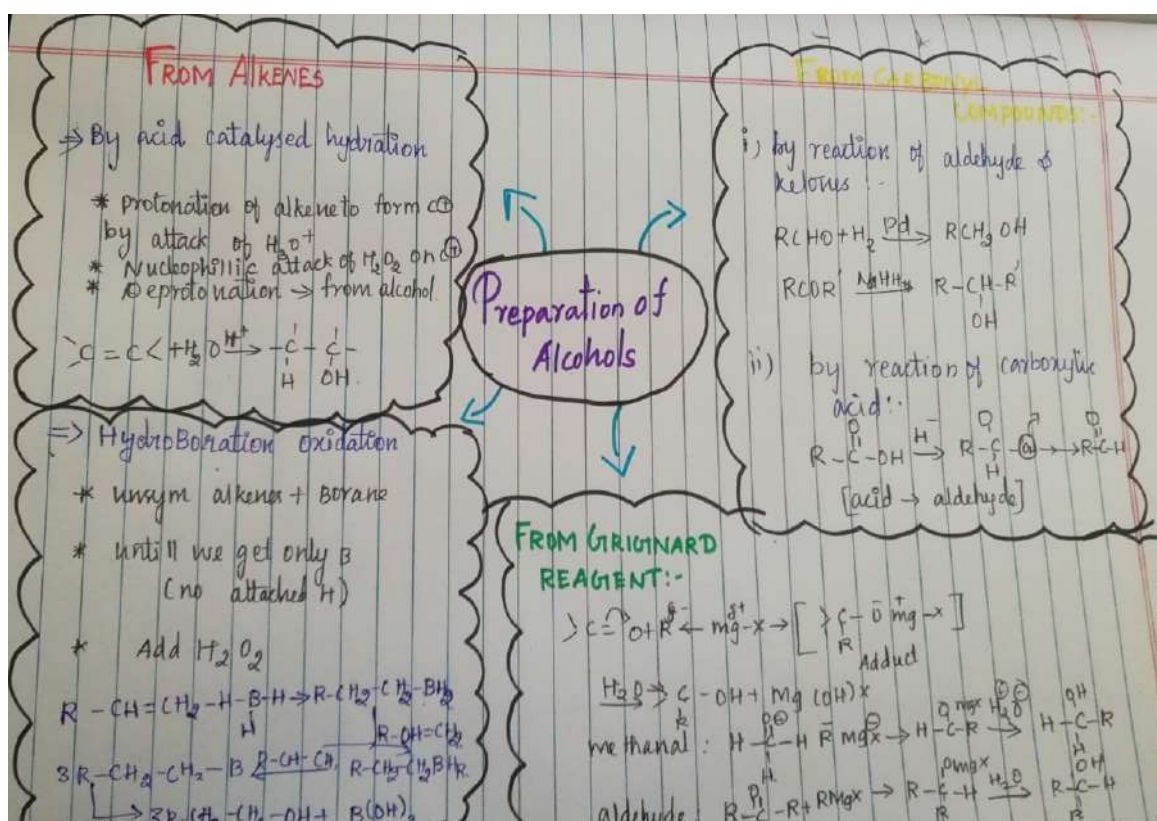 FROM ALKENES
⇒ By acid catalysed hydration
* protonation of alkene to form C⊕
by attack of H₃O⁺
* Nucleophillic attack of H₂O₂ on C⊕
* Deprotonation → from alcohol.
>C=C< + H₂O H⁺→ -C-C-
H OH
⇒ HydroBoration oxidation
* unsym alkenes + Borane
* untill we get only B
(no attached H)
* Add H₂O₂
R-CH=CH₂-H-B-H → R-CH₂-CH₂-BH₂
H
R-OH=CH₂
3R-CH₂-CH₂-B R-CH-CH, R-CH₂-CH₂BHR.
→ 3R-CH₂-CH₂-OH + B(OH)
Preparation of
Alcohols
FROM CARBONYL
COMPOUNDS:-
i) by reaction of aldehyde &
ketones :-
RCHO + H₂ Pd→ RCH₂OH
RCOR' → R-CH-R'
OH
ii) by reaction of carboxylic
acid:-
R-C-OH H⁻→ R-C- →→ R-C-H
[acid → aldehyde]
FROM GRIGNARD
REAGENT:-
>C=O + R ← mg-x → [>C-O mg-x]
R
Adduct
H₂O→ C-OH + Mg(OH)x
R
methanal: H-C-H R mgx → H-C-R H₂O→ H-C-R
aldehyde: R-C-R + RMgx → R-C-H H₂O→ R-C-H